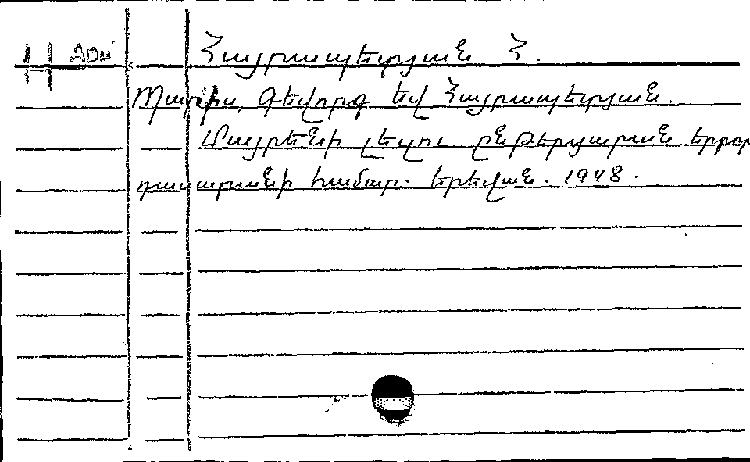 Հայրապետյան Հ.
Գեվորգ եվ Հայրապետյան.
Մայրենի լեզու ընթերցարան երրոր
դասարանի համար. Երեվան. 1948.